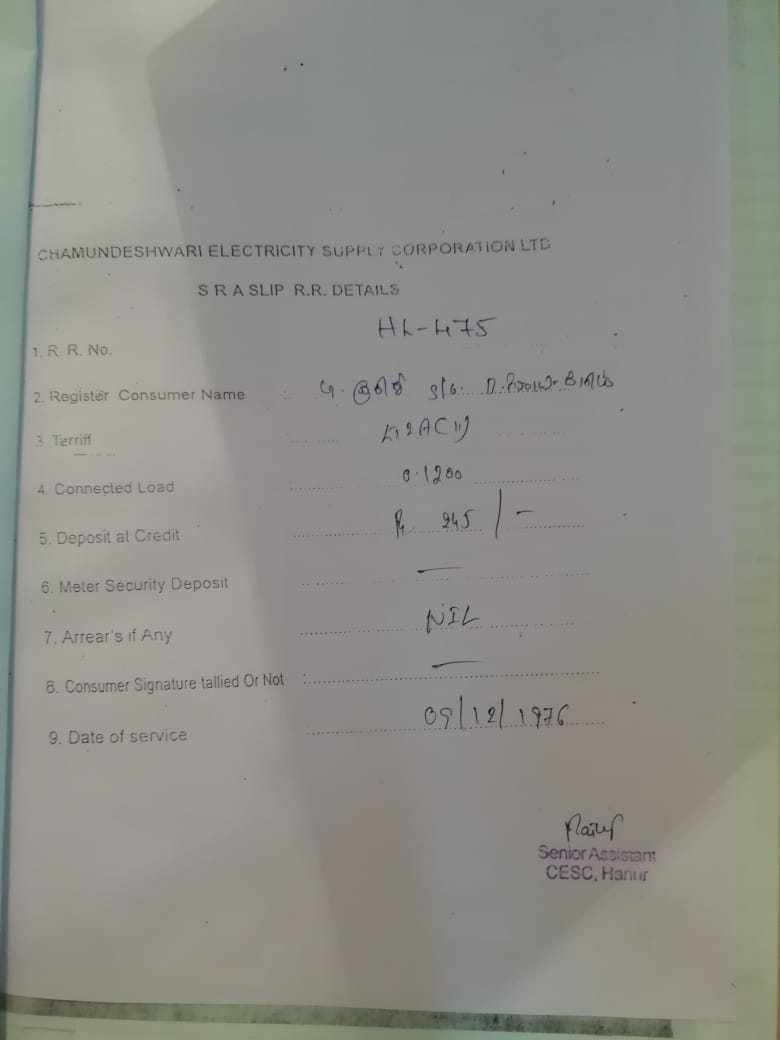 CHAMUNDESHWARI ELECTRICITY SUPPLY CORPORATION LTD
S R A SLIP R.R. DETAILS
1. R. R. No. HL-475
2. Register Consumer Name :
3 Terriff
4. Connected Load 0.1200
5. Deposit at Credit 245/-
6. Meter Security Deposit —
7. Arrear's if Any NIL
8. Consumer Signature tallied Or Not : —
9. Date of service 09/12/1976
Senior Assistant
CESC, Hanur